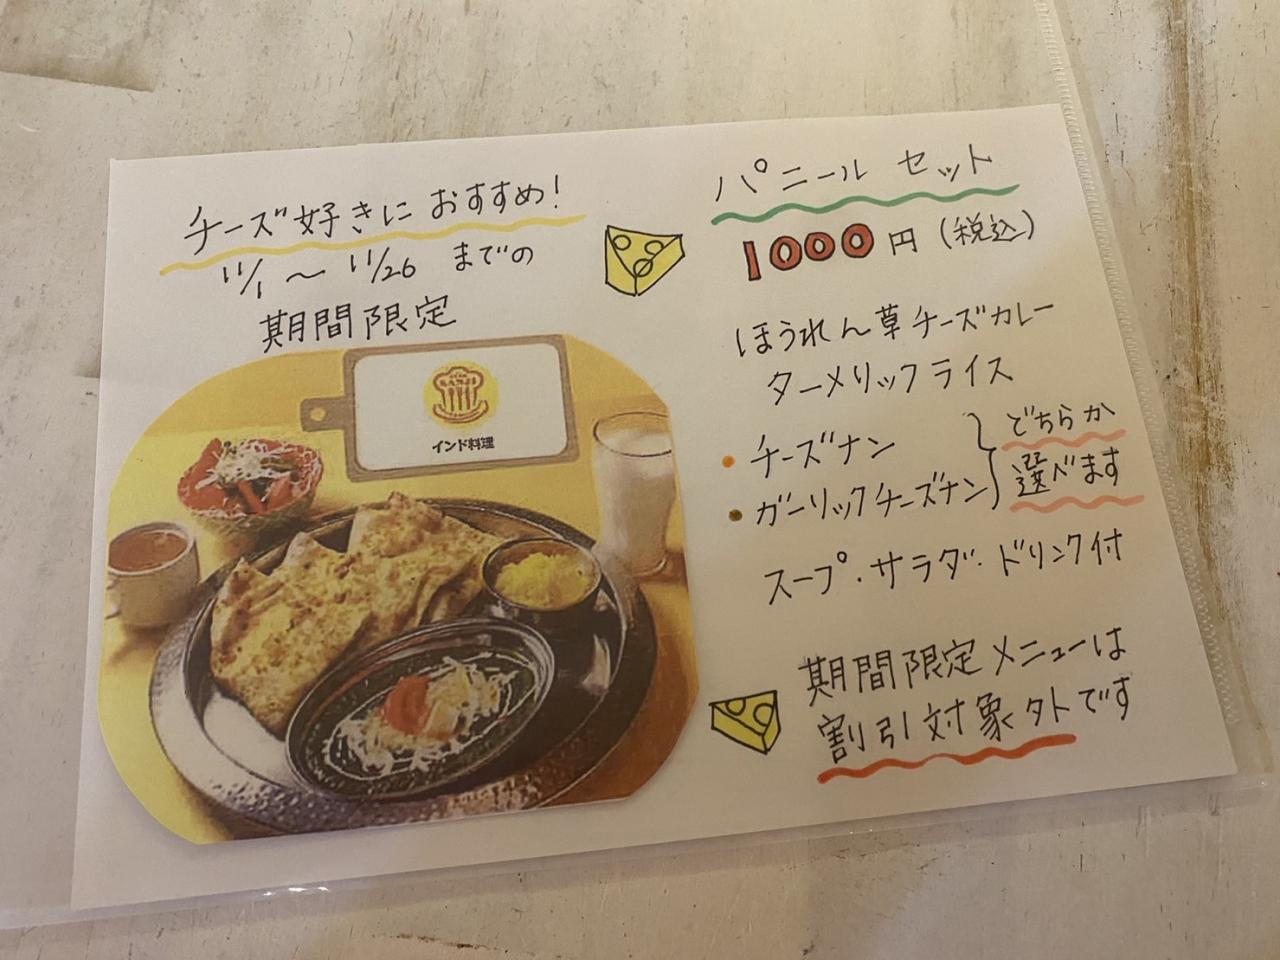 チーズ好きにおすすめ!
11/1 〜 11/26 までの
期間限定
インド料理
パニール セット
1000円(税込)
ほうれん草チーズカレー
ターメリックライス
・チーズナン
・ガーリックチーズナン
どちらか
選べます
スープ・サラダ・ドリンク付
期間限定メニューは
割引対象外です